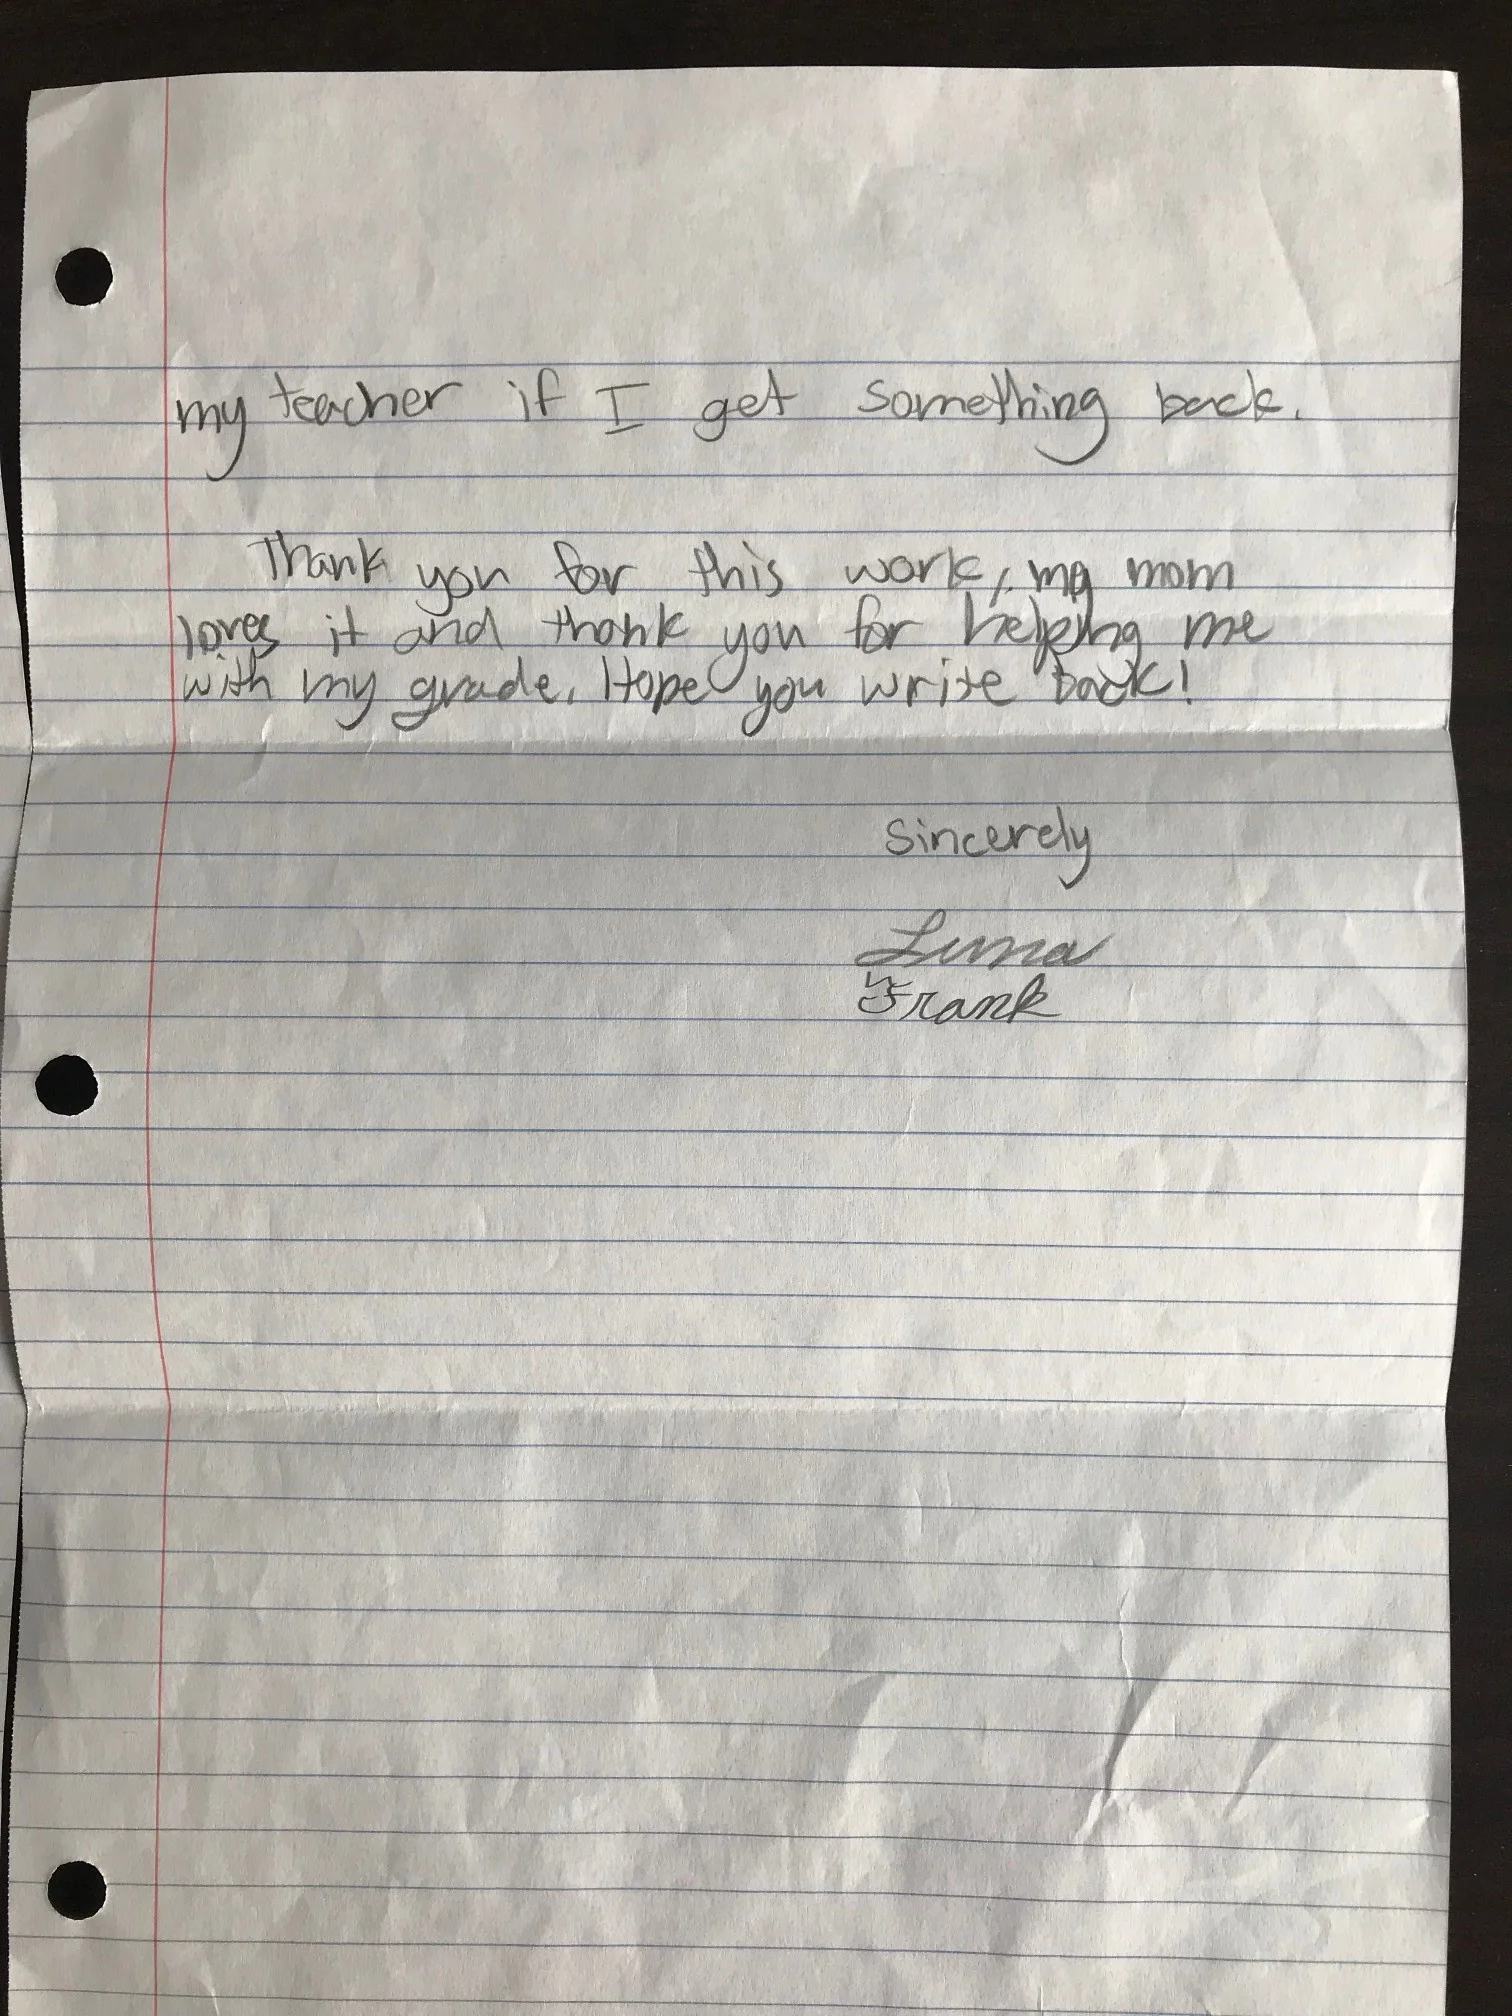 my teacher if I get something back.
Thank you for this work, my mom
loves it and thank you for helping me
with my grade. Hope you write back!
Sincerely
Luna
Frank